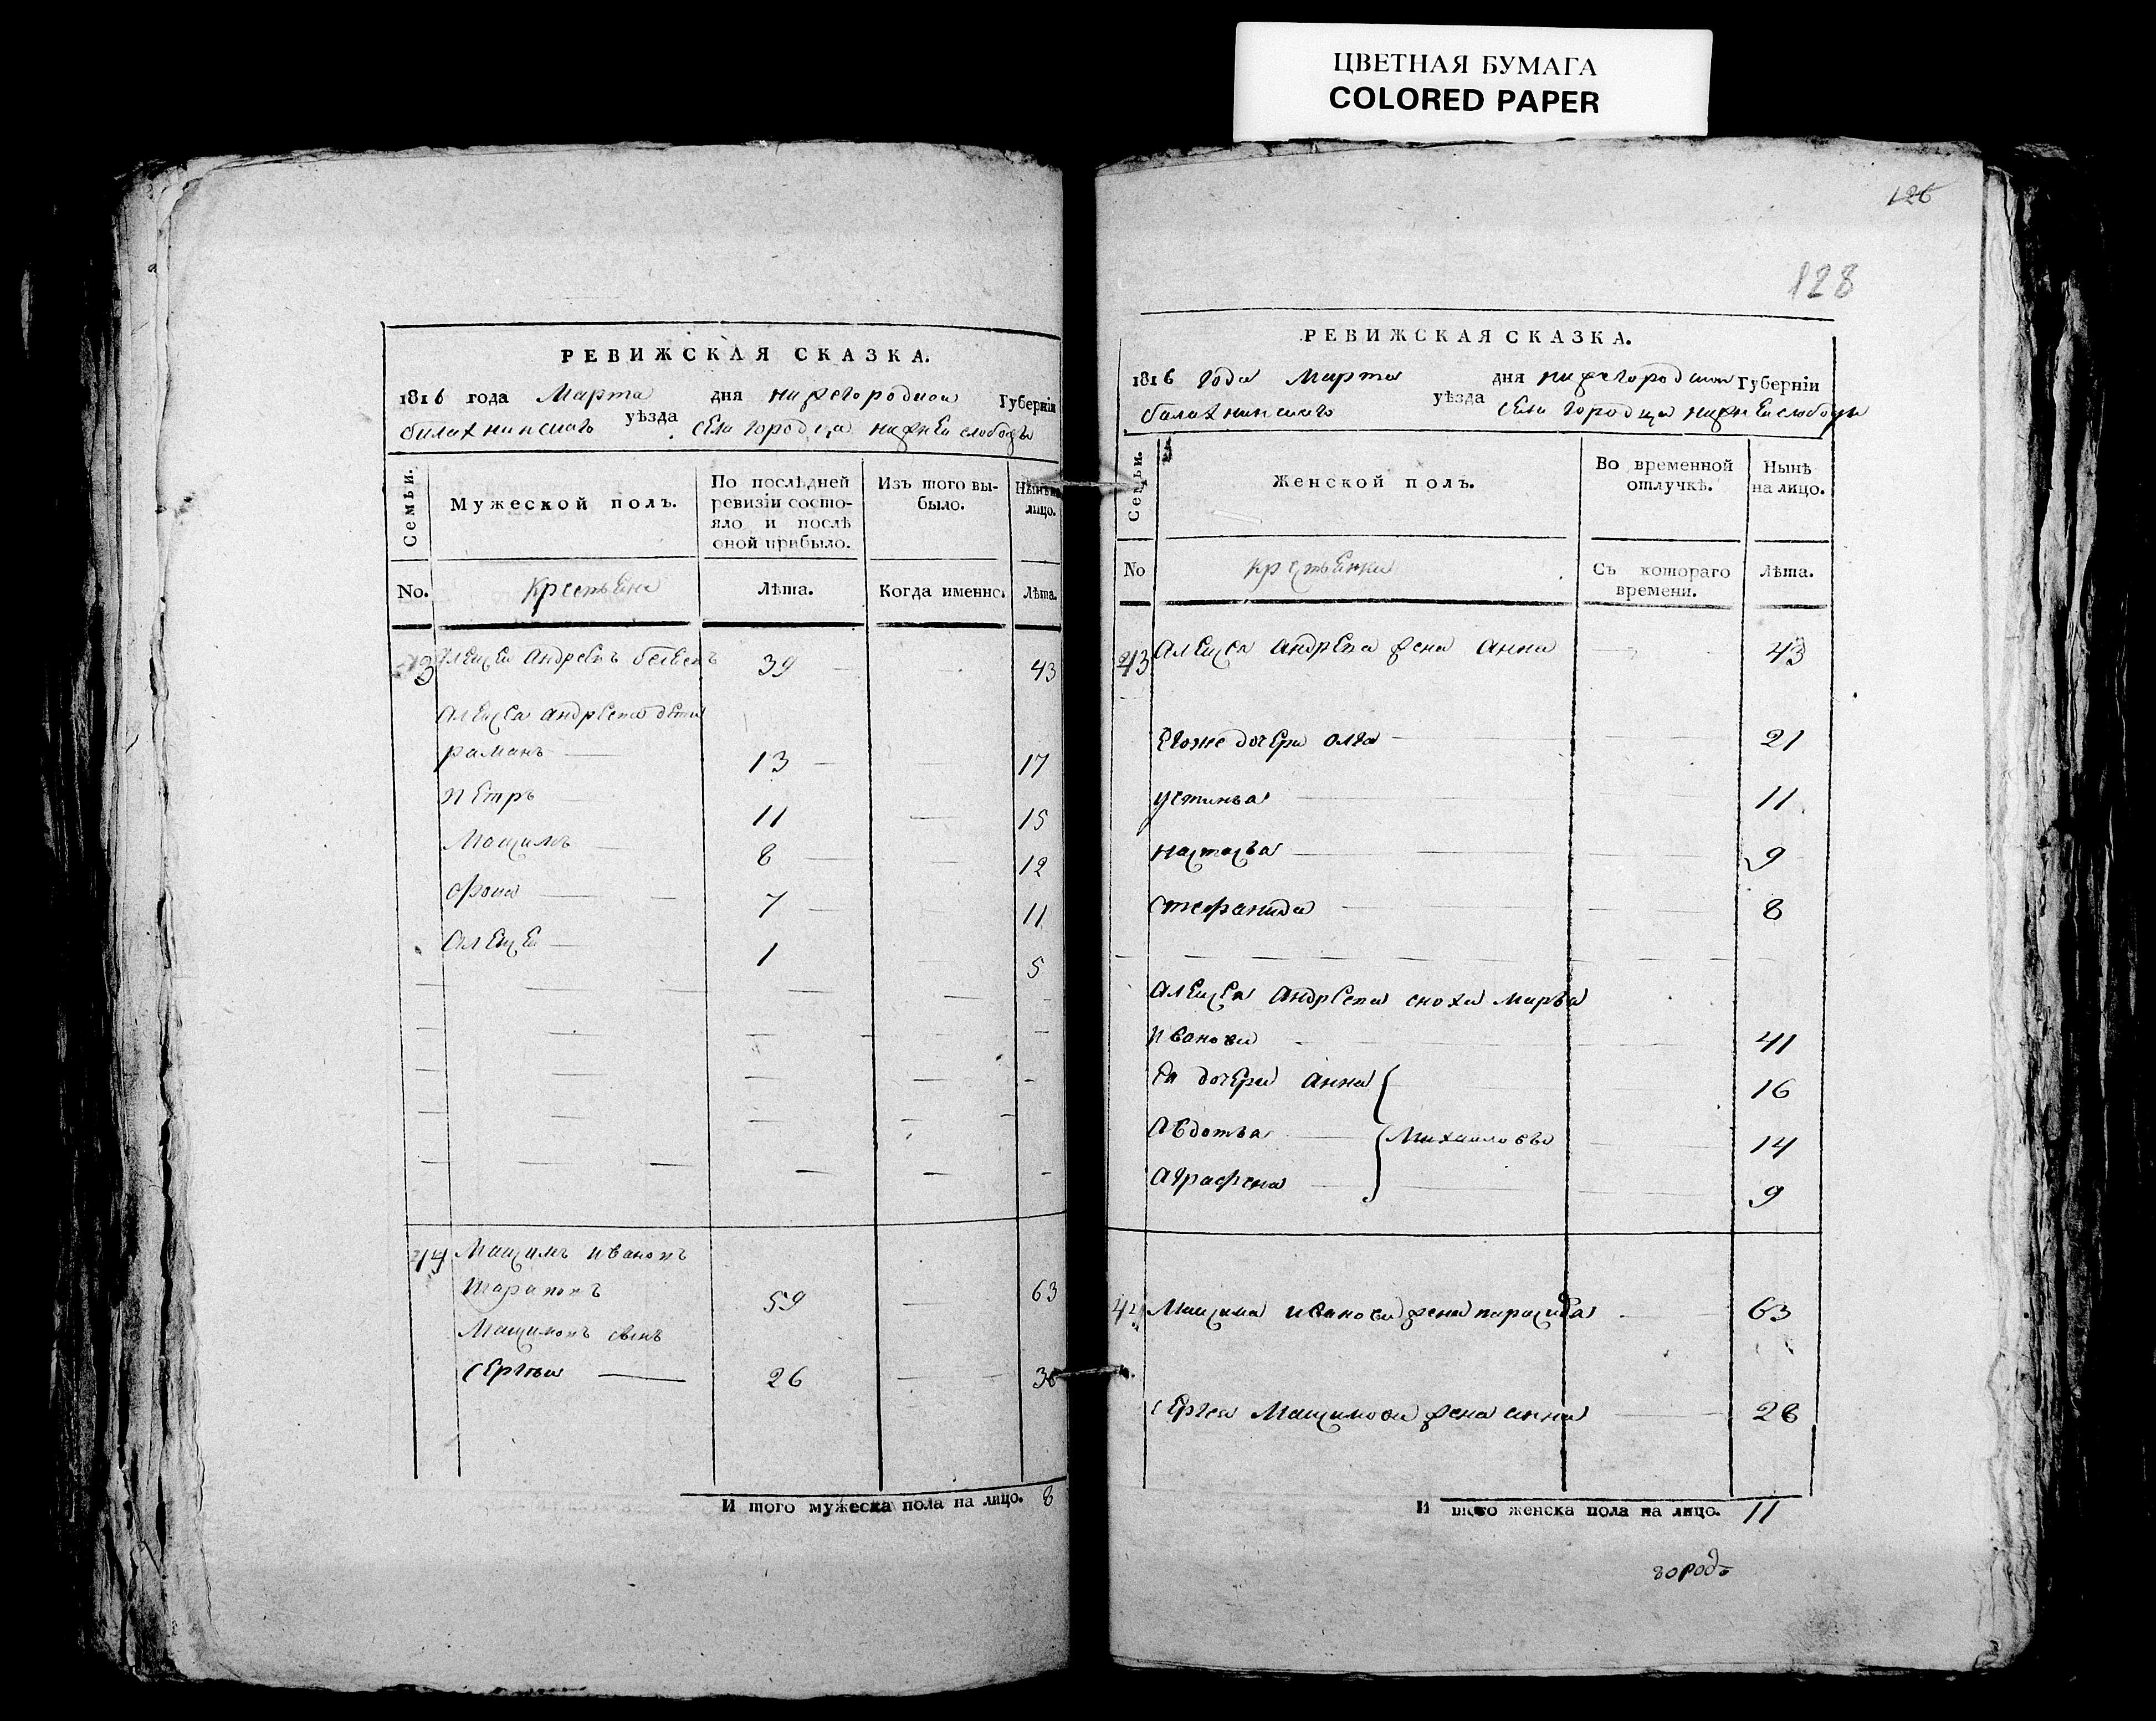 ЦВЕТНАЯ БУМАГА
COLORED PAPER
РЕВИЖСКАЯ СКАЗКА.
1816 года Марта дня нижегородской Губерніи
балахнинскаго уѣзда села городца нижней слободы
Семьи.
Мужеской полъ.
По послѣдней ревизіи состояло и послѣ оной прибыло.
Изъ того выбыло.
Нынѣ на лицо.
No.
крестьяне
Лѣта.
Когда именно.
Лѣта.
43 Алексей андреевъ 39 43
Алексея андреева дети
раманъ 13 17
петръ 11 15
Максимъ 8 12
афона 7 11
Алексей 1 5
44 Максимъ ивановъ
59 63
Максимовъ сынъ
сергей 26 30
И того мужеска пола на лицо. 8
126
128
РЕВИЖСКАЯ СКАЗКА.
1816 года Марта дня нижегородской Губерніи
балахнинскаго уѣзда села городца нижней слободы
Семьи.
Женской полъ.
Во временной отлучкѣ.
Нынѣ на лицо.
No
крестьянки
Съ котораго времени.
Лѣта.
43 Алексея андреева жена анна 43
егоже дочери олга 21
устинья 11
настасья 9
степанида 8
Алексея андреева сноха марья
иванова 41
ея дочери анна 16
авдотья Михайловы 14
аграфена 9
44 Максима иванова жена парасковья 63
сергея Максимова жена анна 28
И того женска пола на лицо. 11
городъ